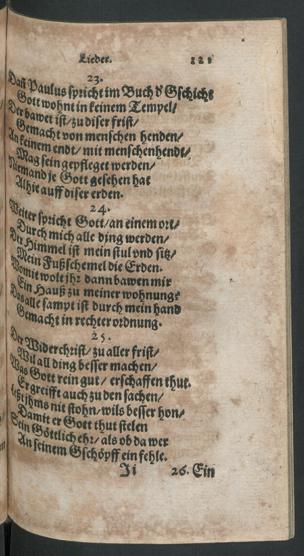 Lieder. 821
23.
Dañ Paulus spricht im Buch d' Gschicht
Gott wohnt in keinem Tempel/
Der bawet ist/ zu diser frist/
Gemacht von menschen henden/
An keinem endt/ mit menschenhendt/
Mag sein gepfleget werden/
Niemand je Gott gesehen hat
Alhie auff diser erden.
24.
Weiter spricht Gott/ an einem ort/
Durch mich alle ding werden/
Der Himmel ist mein stul vnd sitz/
Mein Fußschemel die Erden.
Womit wolt jhr dann bawen mir
Ein Hauß zu meiner wohnung?
Das alle sampt ist durch mein hand
Gemacht in rechter ordnung.
25.
Der Widerchrist/ zu aller frist/
Wil all ding besser machen/
Was Gott rein gut/ erschaffen thut.
Ergreifft auch zu den sachen/
leßt jhms nit stohn/ wils besser hon/
Damit er Gott thut stelen
Sein Göttlich ehr/ als ob da wer
An seinem Gschöpff ein fehle.
Ii 26. Ein